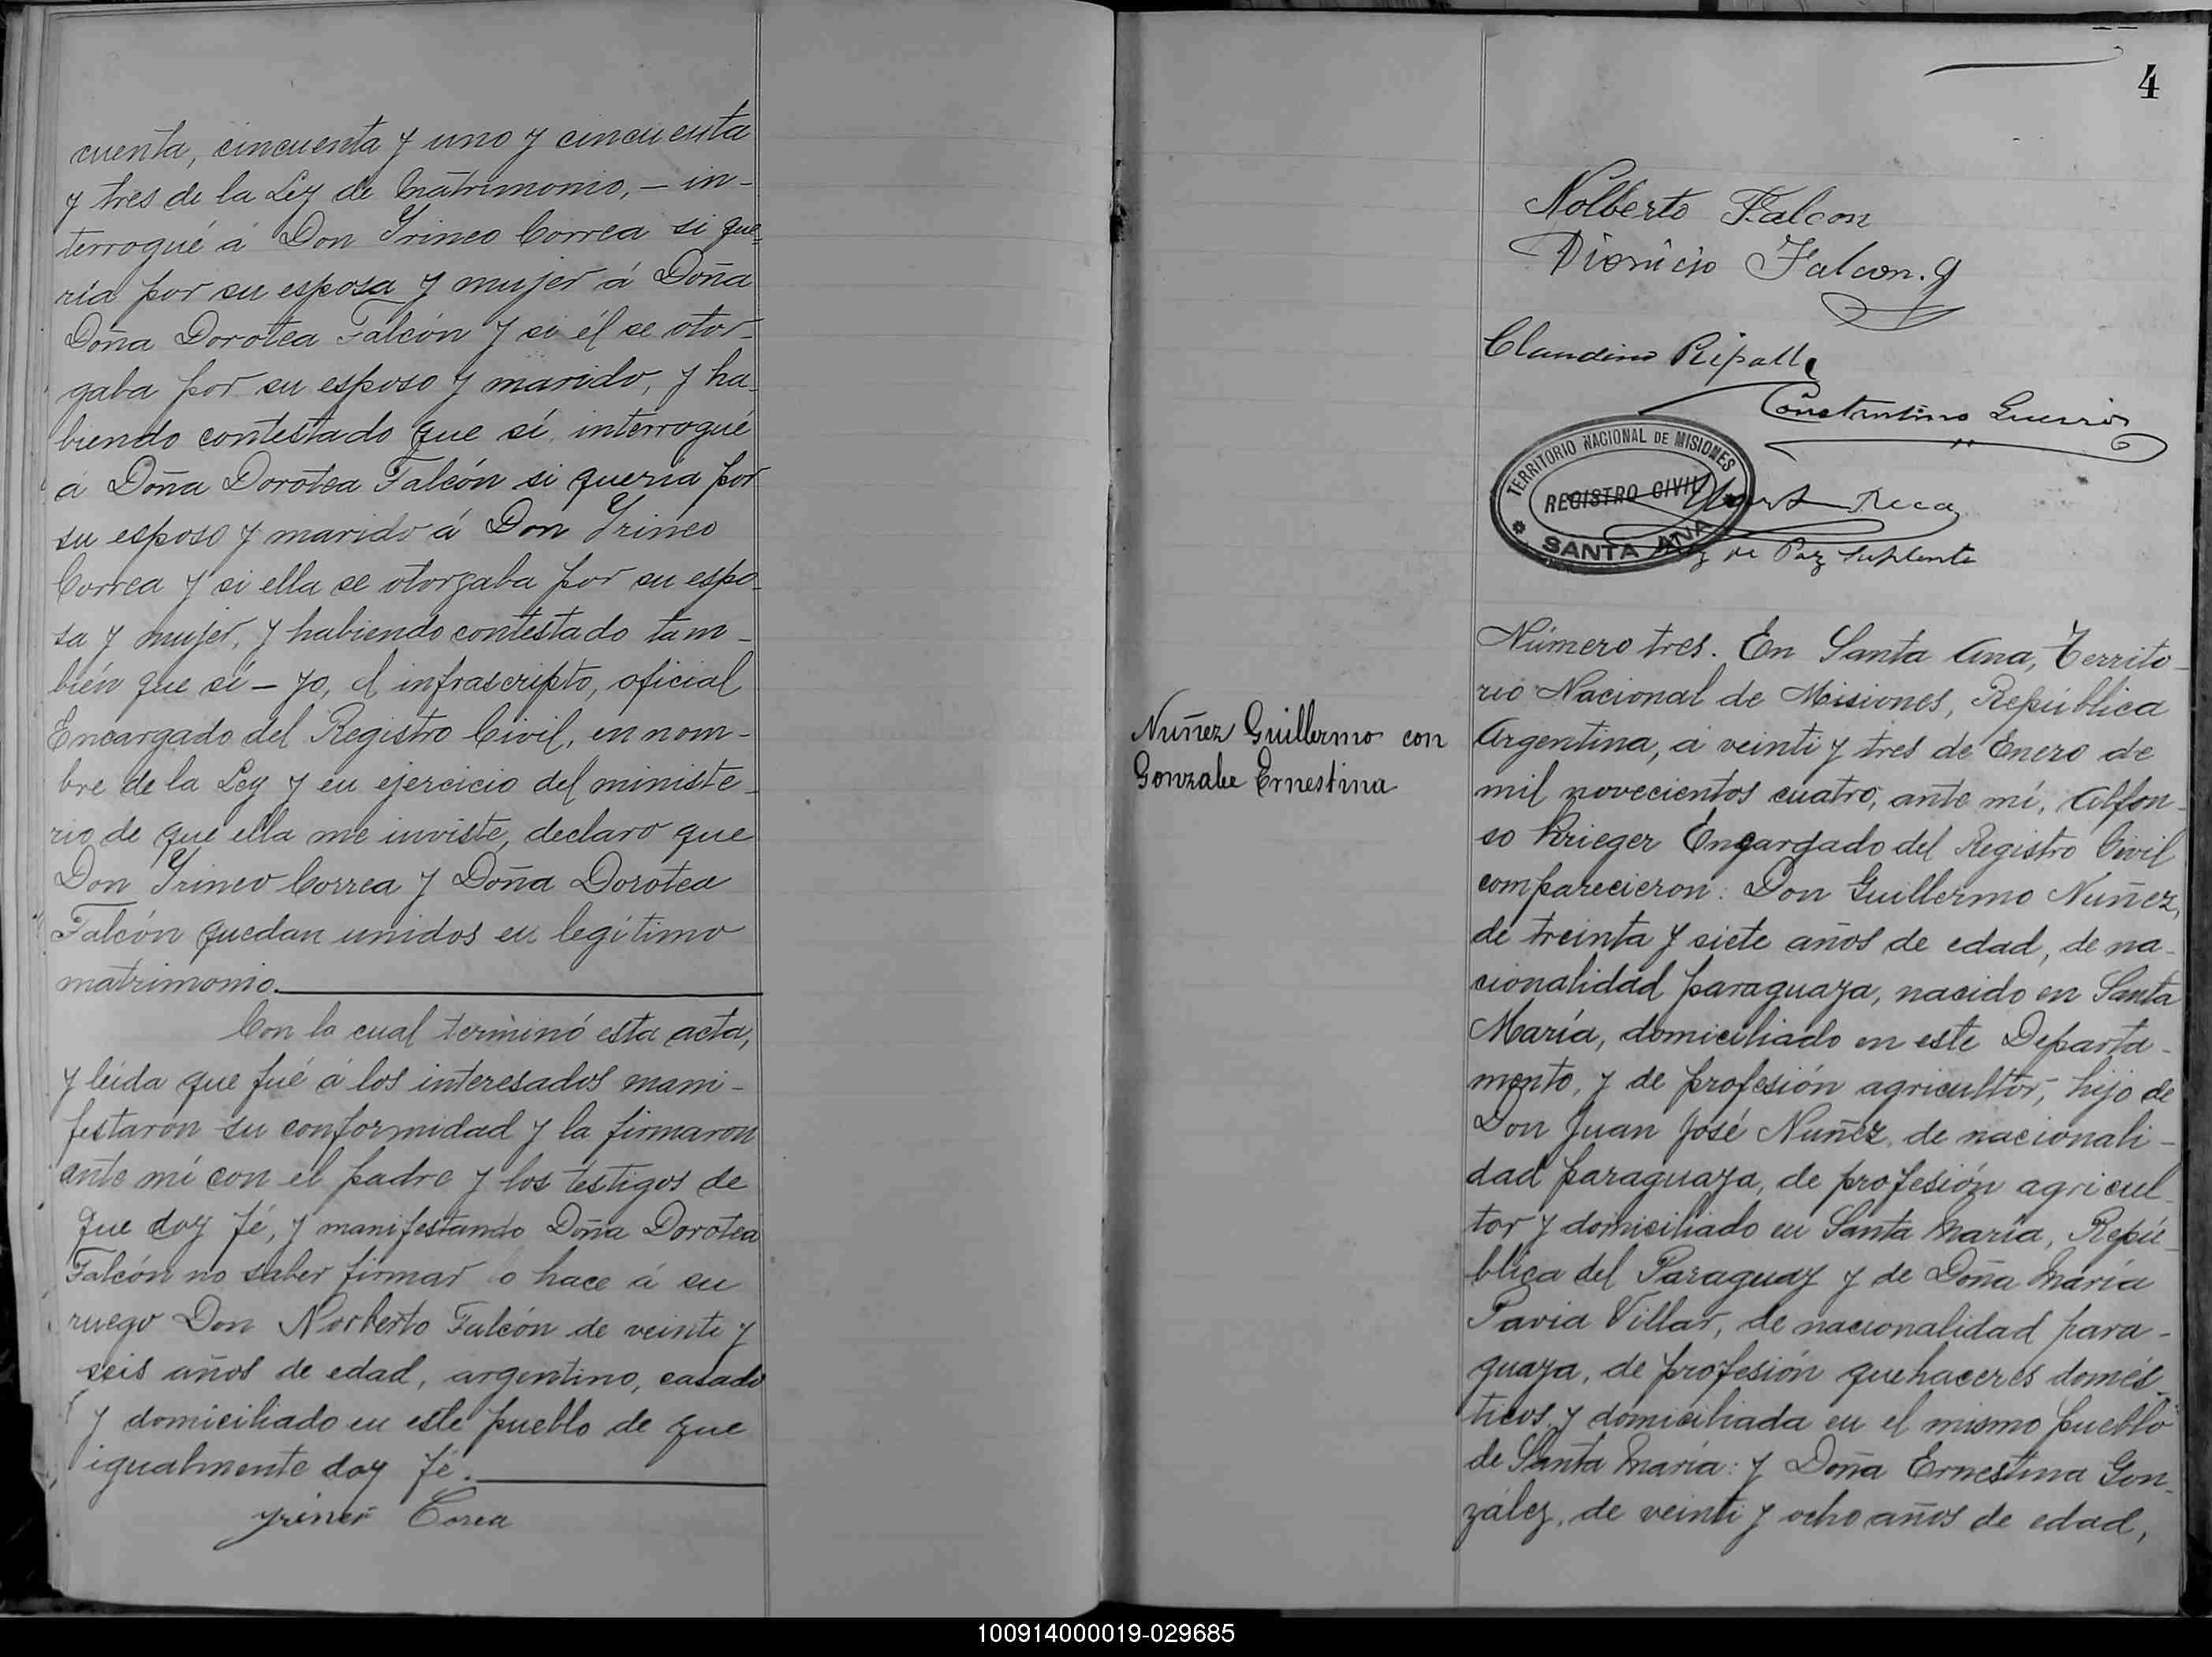 cuenta, cincuenta y uno y cincuenta
y tres de la Ley de Matrimonio, — in-
terrogué á Don Yrineo Correa si que-
ria por su esposa y mujer á Doña
Doña Dorotea Falcón y si él se otor-
gaba por su esposo y marido, y ha-
biendo contestado que sí, interrogué
á Doña Dorotea Falcón si queria por
su esposo y marido á Don Yrineo
Correa y si ella se otorgaba por su espo-
sa y mujer, y habiendo contestado tam-
bién que sí — yo, el infrascripto, oficial
Encargado del Registro Civil, en nom-
bre de la Ley y en ejercicio del ministe-
rio de que ella me inviste, declaro que
Don Yrineo Correa y Doña Dorotea
Falcón quedan unidos en legítimo
matrimonio.
Con lo cual terminó esta acta,
y leida que fué á los interesados mani-
festaron su conformidad y la firmaron
ante mí con el padre y los testigos de
que doy fé, y manifestando Doña Dorotea
Falcón no saber firmar lo hace á su
ruego Don Norberto Falcón de veinte y
seis años de edad, argentino, casado
y domiciliado en este pueblo de que
igualmente doy fé.
Yrineo Corea
4
Nolberto Falcon
Dionicio Falcon. G
Claudino Ripall
Constantino
TERRITORIO NACIONAL DE MISIONES
REGISTRO CIVIL
SANTA ANA
Juez de Paz Suplente
Nuñez Guillermo con
Gonzalez Ernestina
Número tres. En Santa Ana, Territo-
rio Nacional de Misiones, República
Argentina, á veinti y tres de Enero de
mil novecientos cuatro, ante mí, Alfon-
so Krieger Encargado del Registro Civil
comparecieron: Don Guillermo Nuñez,
de treinta y siete años de edad, de na-
cionalidad paraguaya, nacido en Santa
María, domiciliado en este Departa-
mento, y de profesión agricultor, hijo de
Don Juan José Nuñez, de nacionali-
dad paraguaya, de profesión agricul-
tor y domiciliado en Santa María, Repú-
blica del Paraguay y de Doña María
Pavia Villar, de nacionalidad para-
guaya, de profesión quehaceres domés-
ticos y domiciliada en el mismo pueblo
de Santa María: y Doña Ernestina Gon-
zález, de veinti y ocho años de edad,
100914000019-029685